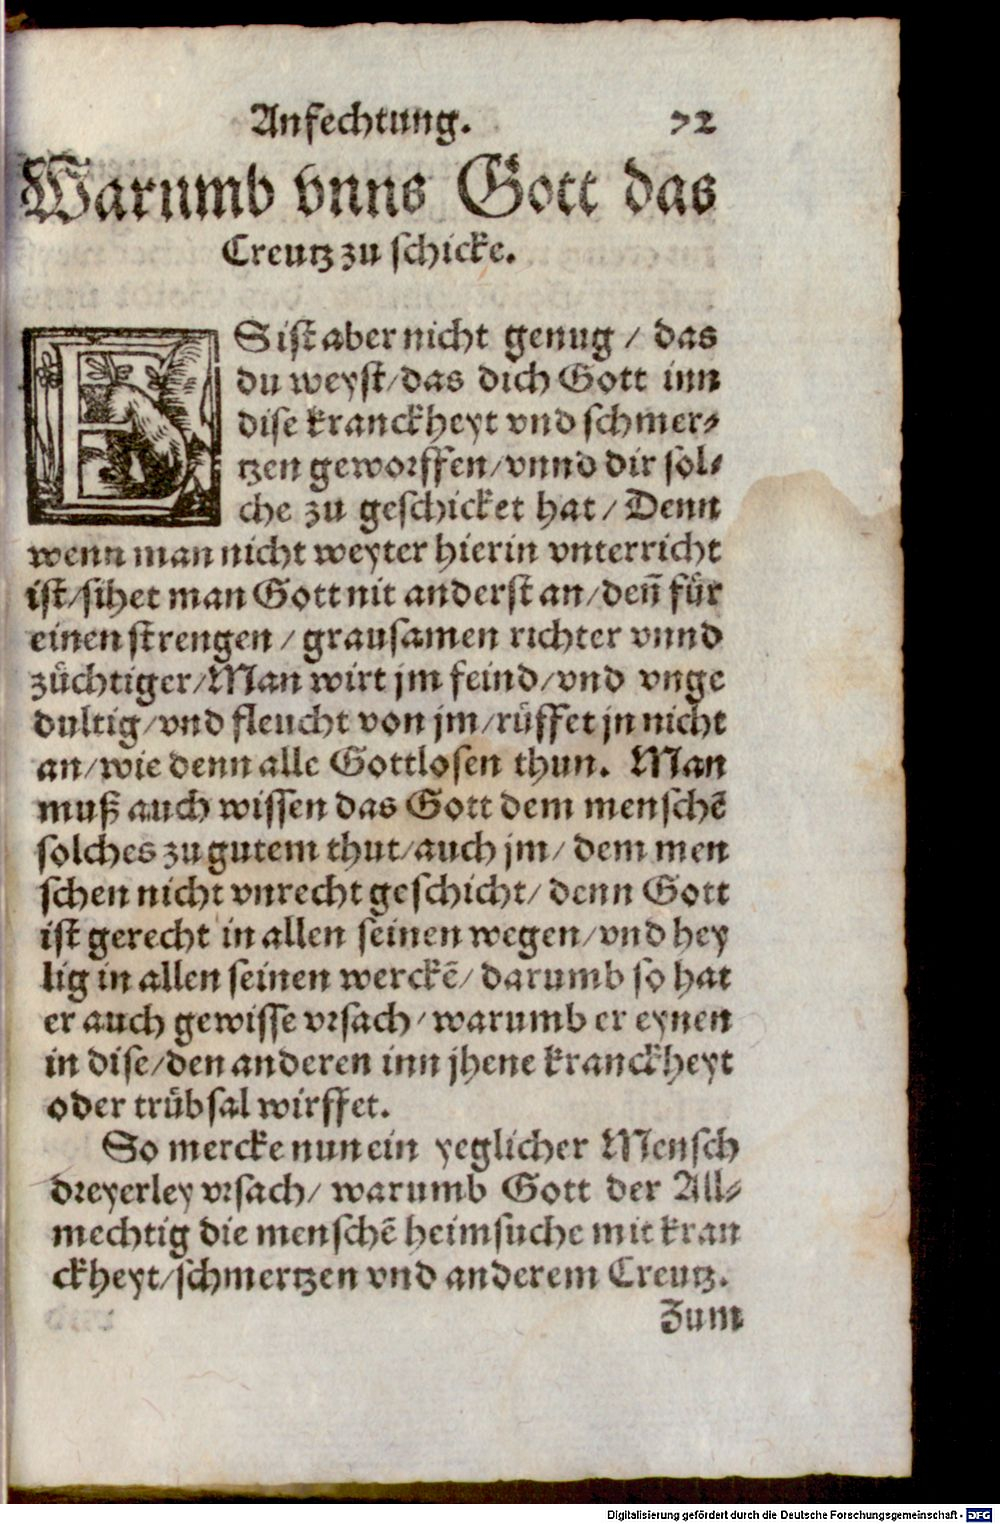 Anfechtung. 72
Warumb vnns Gott das
Creutz zu schicke.
ES ist aber nicht genug / das
du weyst / das dich Gott inn
dise kranckheyt vnd schmer⸗
tzen geworffen / vnnd dir sol⸗
che zu geschicket hat / Denn
wenn man nicht weyter hierin vnterricht
ist / sihet man Gott nit anderst an / deñ fuͤr
einen strengen / grausamen richter vnnd
zuͤchtiger / Man wirt jm feind / vnd vnge
dultig / vnd fleucht von jm / ruͤffet jn nicht
an / wie denn alle Gottlosen thun. Man
muß auch wissen das Gott dem menschẽ
solches zu gutem thut / auch jm / dem men
schen nicht vnrecht geschicht / denn Gott
ist gerecht in allen seinen wegen / vnd hey
lig in allen seinen werckẽ / darumb so hat
er auch gewisse vrsach / warumb er eynen
in dise / den anderen inn jhene kranckheyt
oder truͤbsal wirffet.
So mercke nun ein yeglicher Mensch
dreyerley vrsach / warumb Gott der All⸗
mechtig die menschẽ heimsuche mit kran
ckheyt / schmertzen vnd anderem Creutz.
Zum
Digitalisierung gefördert durch die Deutsche Forschungsgemeinschaft - DFG